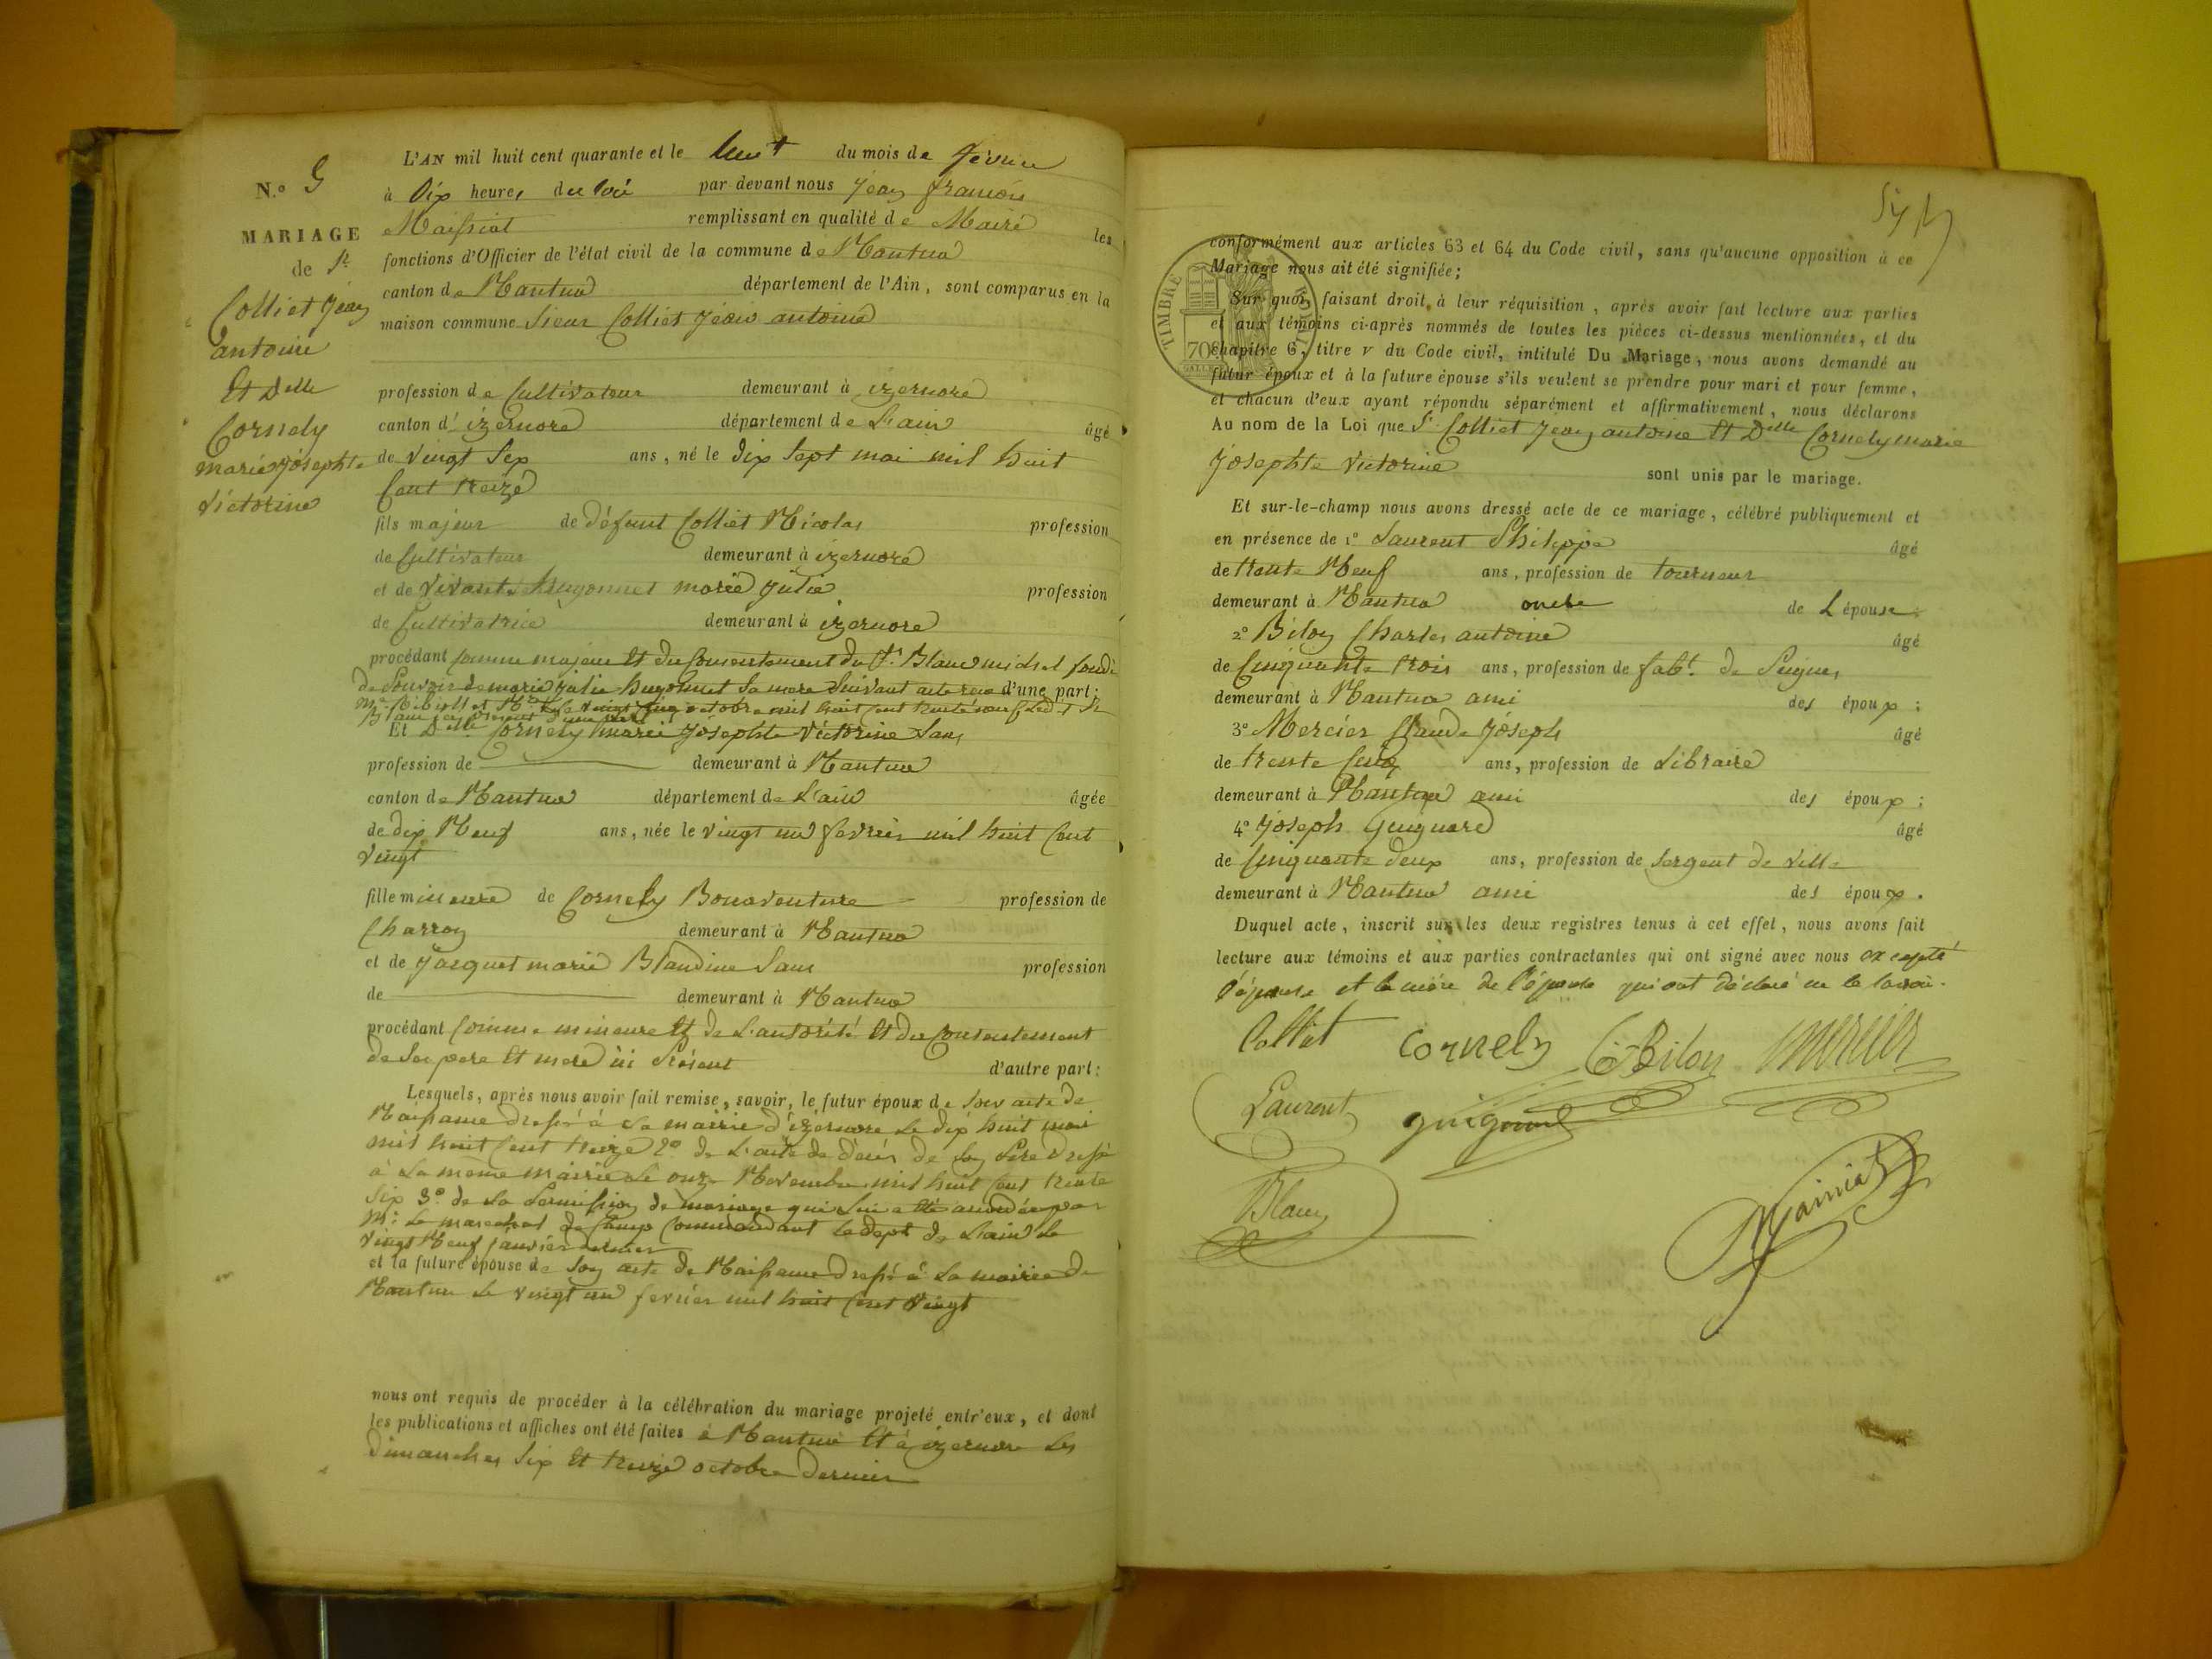 N.o 9
MARIAGE
de Sr
Colliet Jean
antoine
Et Delle
Cornely
marie josephte
victorine
L'AN mil huit cent quarante et le huit du mois de février
à Dix heures du soir par-devant nous jean françois
Maissiat remplissant en qualité de Maire les
fonctions d'Officier de l'état civil de la commune de Nantua
canton de Nantua département de l'Ain, sont comparus en la
maison commune Sieur Colliet jean antoine
profession de Cultivateur demeurant à izernore
canton d'izernore département de L'ain âgé
de vingt Six ans, né le dix Sept mai mil huit
Cent treize
fils majeur de défunt Colliet Nicolas profession
de Cultivateur demeurant à izernore
et de vivante hugonnet marie julie profession
de Cultivatrice demeurant à izernore
procédant Comme majeur Et du Consentement du Sr Blanc michel fondé
de Pouvoir de marie julie hugonnet Sa mere Suivant acte recu d'une part;
le vingt cinq octobre mil huit cent trente neuf
Et Delle Cornely marie josephte victorine Sans
profession de demeurant à Nantua
canton de Nantua département de L'ain âgée
de dix Neuf ans, née le vingt un fevrier mil huit Cent
vingt
fille mineure de Cornely Bonaventure profession de
Charron demeurant à Nantua
et de Jacquet marie Blandine Sans profession
de demeurant à Nantua
procédant Comme mineure Et de L'autorité Et du Consentement
de Ses pere Et mere ici Présent d'autre part:
Lesquels, après nous avoir fait remise, savoir, le futur époux de Son acte de
Naissance dressé à La mairie d'izernore Le dix huit mai
mil huit Cent treize 2o de L'acte de décès de Son Père dressé
à La même mairie Le onze Novembre mil huit Cent trente
Six 3o de La Permission de mariage qui Lui a été accordée par
Mr Le marechal de Camp Commandant Le dept de L'ain Le
vingt Neuf janvier dernier
et la future épouse de Son acte de Naissance dressé à La mairie de
Nantua Le vingt un fevrier mil huit Cent vingt
nous ont requis de procéder à la célébration du mariage projeté entr'eux, et dont
les publications et affiches ont été faites à Nantua Et à izernore Les
Dimanches Six Et treize octobre dernier
conformément aux articles 63 et 64 du Code civil, sans qu'aucune opposition à ce
Mariage nous ait été signifiée;
TIMBRE ROYAL
70c
Sur quoi, faisant droit à leur réquisition, après avoir fait lecture aux parties
et aux témoins ci-après nommés de toutes les pièces ci-dessus mentionnées, et du
chapitre 6, titre v du Code civil, intitulé Du Mariage, nous avons demandé au
futur époux et à la future épouse s'ils veulent se prendre pour mari et pour femme,
et chacun d'eux ayant répondu séparément et affirmativement, nous déclarons
Au nom de la Loi que Sr Colliet Jean antoine Et Delle Cornely marie
Josephte victorine sont unis par le mariage.
Et sur-le-champ nous avons dressé acte de ce mariage, célébré publiquement et
en présence de 1o Laurent Philippe âgé
de trante Neuf ans, profession de tourneur
demeurant à Nantua oncle de L'épouse;
2o Bilon Charles antoine âgé
de Cinquante trois ans, profession de fabt de Peignes
demeurant à Nantua ami des époux;
3o Mercier Claude Joseph âgé
de trente Cinq ans, profession de Libraire
demeurant à Nantua ami des époux;
4o Joseph Guignard âgé
de Cinquante deux ans, profession de Sergent de ville
demeurant à Nantua ami des époux.
Duquel acte, inscrit sur les deux registres tenus à cet effet, nous avons fait
lecture aux témoins et aux parties contractantes qui ont signé avec nous excepté
l'épouse et la mère de l'épouse qui ont déclaré ne le savoir.
Colliet Cornely CBilon Mercier
Laurent guignard
Blanc
Maissiat